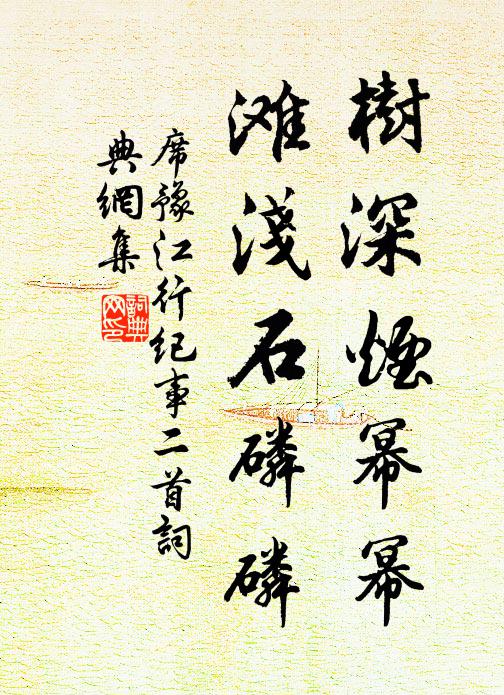 樹深煙冪冪
滩淺石磷磷
席豫江行纪事二首詞
典網集
詞典
网印